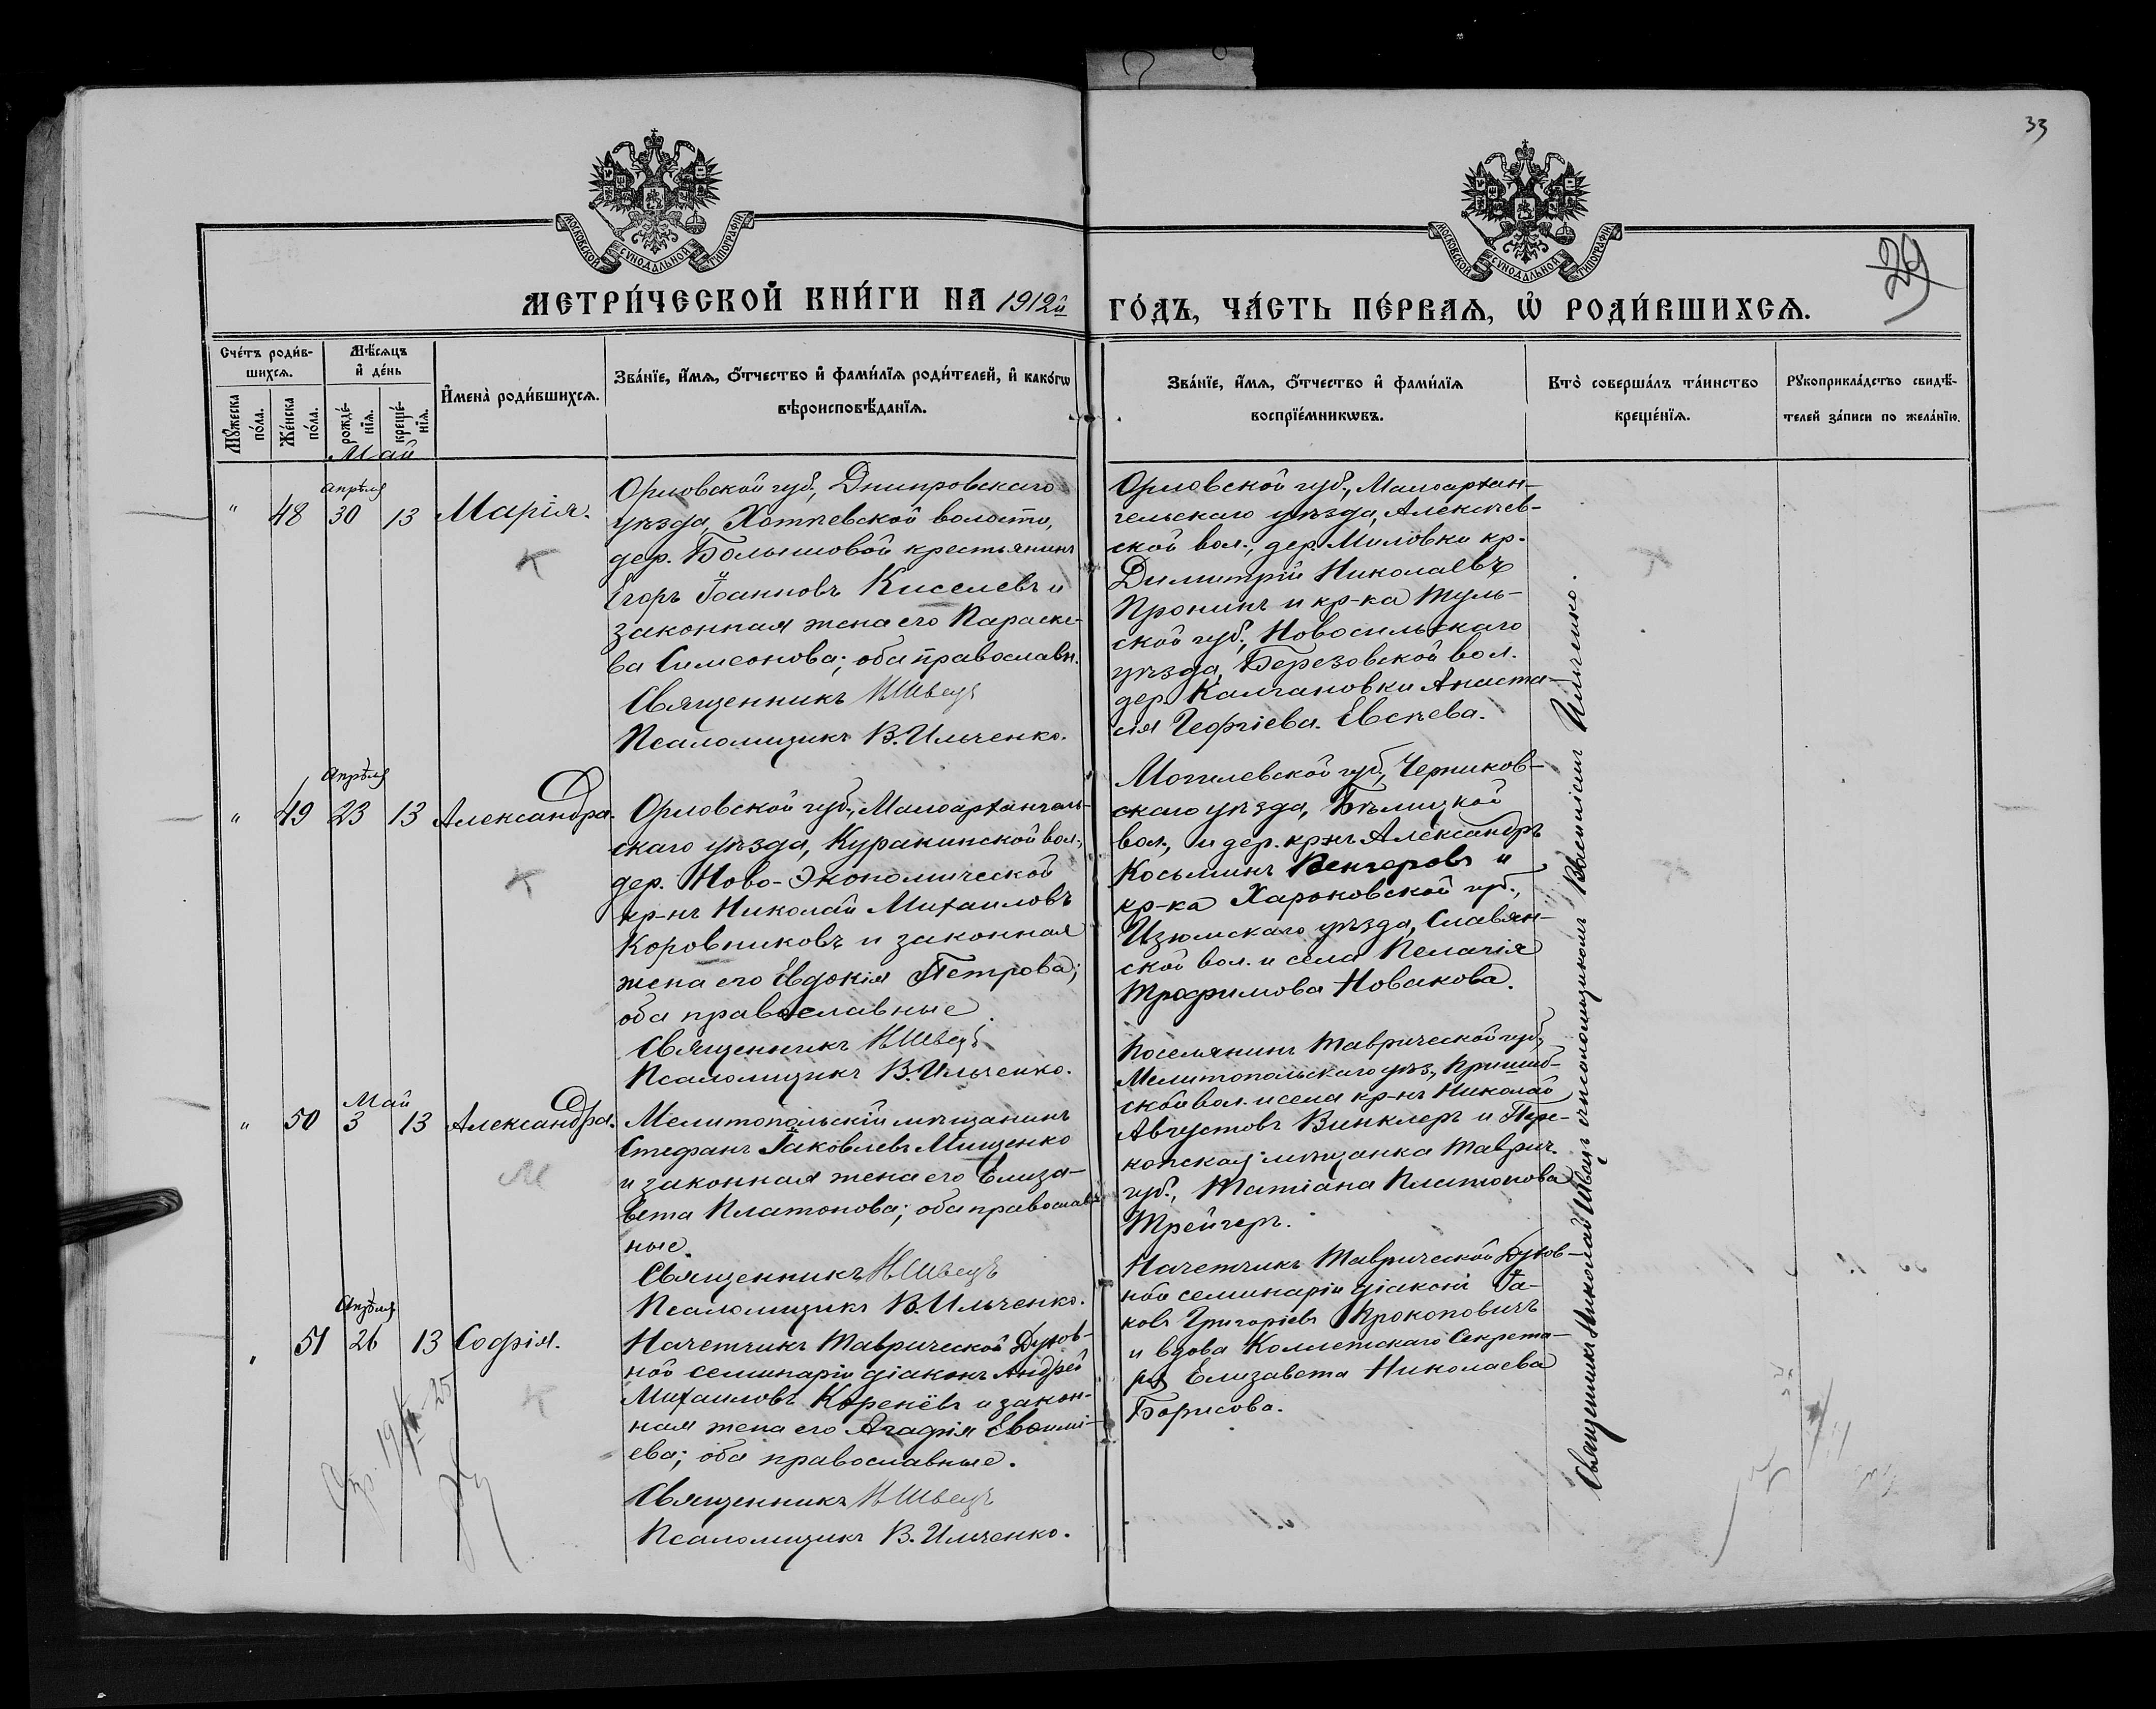 33
29
МОСКОВСКОЙ СѴНОДАЛЬНОЙ ТИПОГРАФІИ
МОСКОВСКОЙ СѴНОДАЛЬНОЙ ТИПОГРАФІИ
МЕТРИ́ЧЕСКОЙ КНИ́ГИ НА 1912й ГО́ДЪ, ЧА́СТЬ ПЕ́РВАѦ, Ѡ҆ РОДИ́ВШИХСѦ.
Сче́тъ роди́в-
шихсѧ.
Мꙋжеска по́ла.
Же́нска по́ла.
Мѣ́сѧцъ
и҆ де́нь
рожде́-нїѧ.
креще́-нїѧ.
И҆мена̀ роди́вшихсѧ.
Зва́нїе, и҆́мѧ, ѻ҆́тчество и҆ фами́лїѧ роди́телей, и҆ како́гѡ
вѣроисповѣ́данїѧ.
Зва́нїе, и҆́мѧ, ѻ҆́тчество и҆ фами́лїѧ
воспрїе́мникѡвъ.
Кто̀ соверша́лъ та́инство
креще́нїѧ.
Рꙋкоприкла́дство свидѣ́-
телей за́писи по жела́нїю.
Май
Апрѣля
" 48 30 13 Марія.
К
Орловской губ., Дмитровскаго
уѣзда, Хотѣевской волости,
дер. Большовой крестьянинъ
Егоръ Іоанновъ Киселевъ и
законная жена его Параске-
ва Симеонова; оба православн.
Священникъ Н Швецъ
Псаломщикъ В. Ильченко.
Орловской губ., Малоархан-
гельскаго уѣзда, Алексѣев-
ской вол., дер. Миловки кр.
Димитрій Николаевъ
Пронинъ и кр-ка Туль-
ской губ., Новосильскаго
уѣзда, Березовской вол.
дер. Калгановки Анаста-
сія Георгіева Евсѣева.
Апрѣля
" 49 23 13 Александра.
К
Орловской губ., Малоархангель-
скаго уѣзда, Куракинской вол.,
дер. Ново-Экономической
кр-нъ Николай Михаиловъ
Коровниковъ и законная
жена его Евдокія Петрова;
оба православные.
Священникъ Н Швецъ
Псаломщикъ В. Ильченко.
Могилевской губ., Чериков-
скаго уѣзда, Бѣлицкой
вол., и дер. кр-нъ Александръ
Косьминъ Венгеровъ и
кр-ка Харьковской губ.,
Изюмскаго уѣзда, Славян-
ской вол. и села Пелагія
Трофимова Новакова.
Май
" 50 3 13 Александра.
М
Мелитопольскій мѣщанинъ
Стефанъ Іаковлевъ Мищенко
и законная жена его Елиза-
вета Платонова; оба православ-
ные.
Священникъ Н Швецъ
Псаломщикъ В. Ильченко.
Поселянинъ Таврической губ.,
Мелитопольскаго уѣз., Пришиб-
ской вол. и села кр-нъ Николай
Августовъ Винклеръ и Пере-
копская мѣщанка Таврич.
губ., Татіана Платонова
Трейгеръ.
Апрѣля
" 51 26 13 Софія.
К
Начетчикъ Таврической Духов-
ной семинаріи діаконъ Андрей
Михаиловъ Коренёвъ и закон-
ная жена его Агафія Евѳимі-
ева; оба православные.
Священникъ Н Швецъ
Псаломщикъ В. Ильченко.
Начетчикъ Таврической Духов-
ной семинаріи діаконъ Іа-
ковъ Григоріевъ Прокоповичъ
и вдова Коллежскаго Секрета-
ря Елизавета Николаева
Борисова.
Священникъ Николай Швецъ съ псаломщикомъ Василіемъ Ильченко.